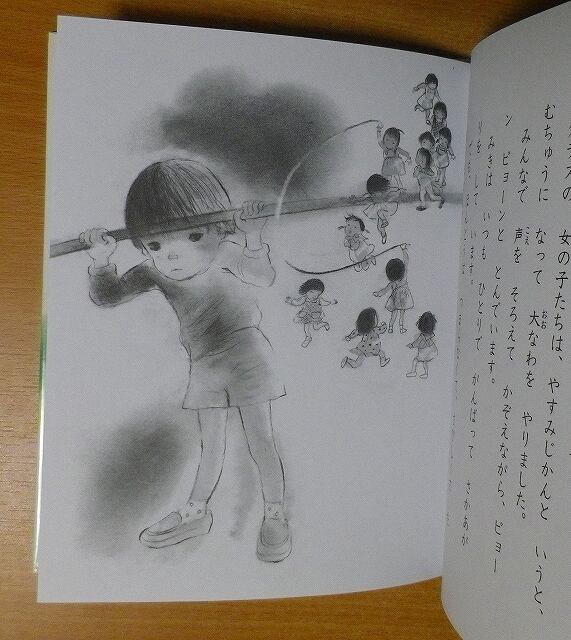 女の子たちは、やすみじかんと いうと、
むちゅうに なって 大なわを やりました。
おお
みんなで 声を そろえて かぞえながら、ピョー
こえ
ン ピョーンと とんでいます。
みきは いつも ひとりで がんばって さかあが
りを しています。